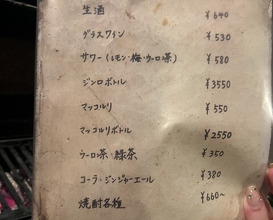 生酒 ¥640
グラスワイン ¥530
サワー(レモン・梅・ウーロ茶) ¥580
ジンロボトル ¥3550
マッコルリ ¥550
マッコルリボトル ¥2550
ウーロ茶・緑茶 ¥350
コーラ・ジンジャーエール ¥380
焼酎各種 ¥660~